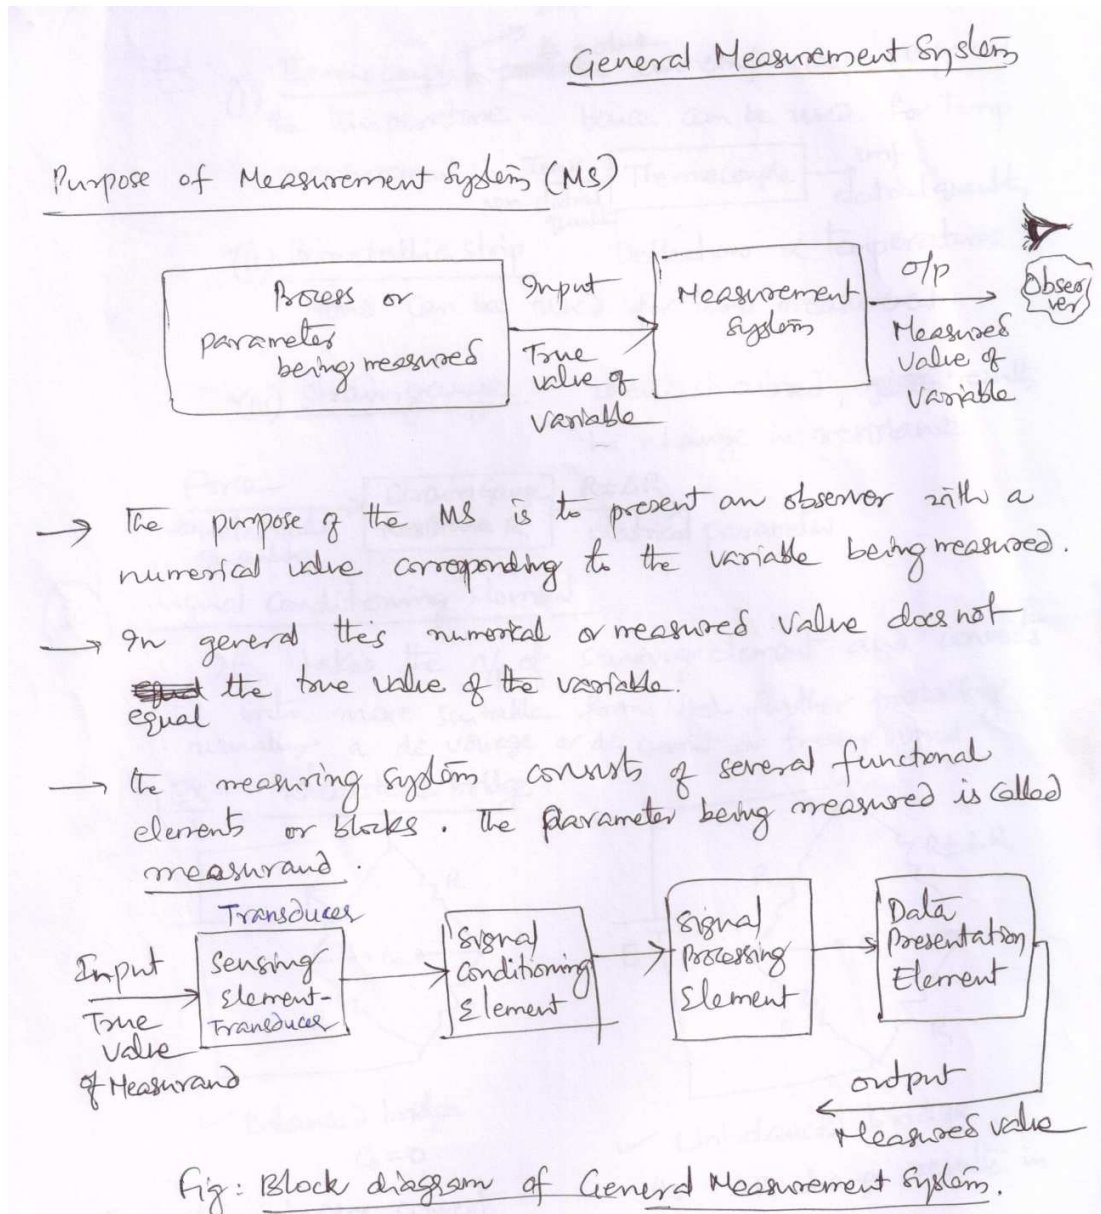 General Measurement System
Purpose of Measurement System (MS)
Process or
parameter
being measured
Input
True
value of
variable
Measurement
System
o/p
Measured
value of
variable
Obser
ver
→ The purpose of the MS is to present an observer with a
numerical value corresponding to the variable being measured.
→ In general this numerical or measured value does not
equal the true value of the variable.
equal
→ the measuring system consists of several functional
elements or blocks. The parameter being measured is called
measurand.
Input
True
Value
of Measurand
Transducer
Sensing
Element-
Transducer
Signal
Conditioning
Element
Signal
Processing
Element
Data
Presentation
Element
output
Measured value
Fig: Block diagram of General Measurement System.